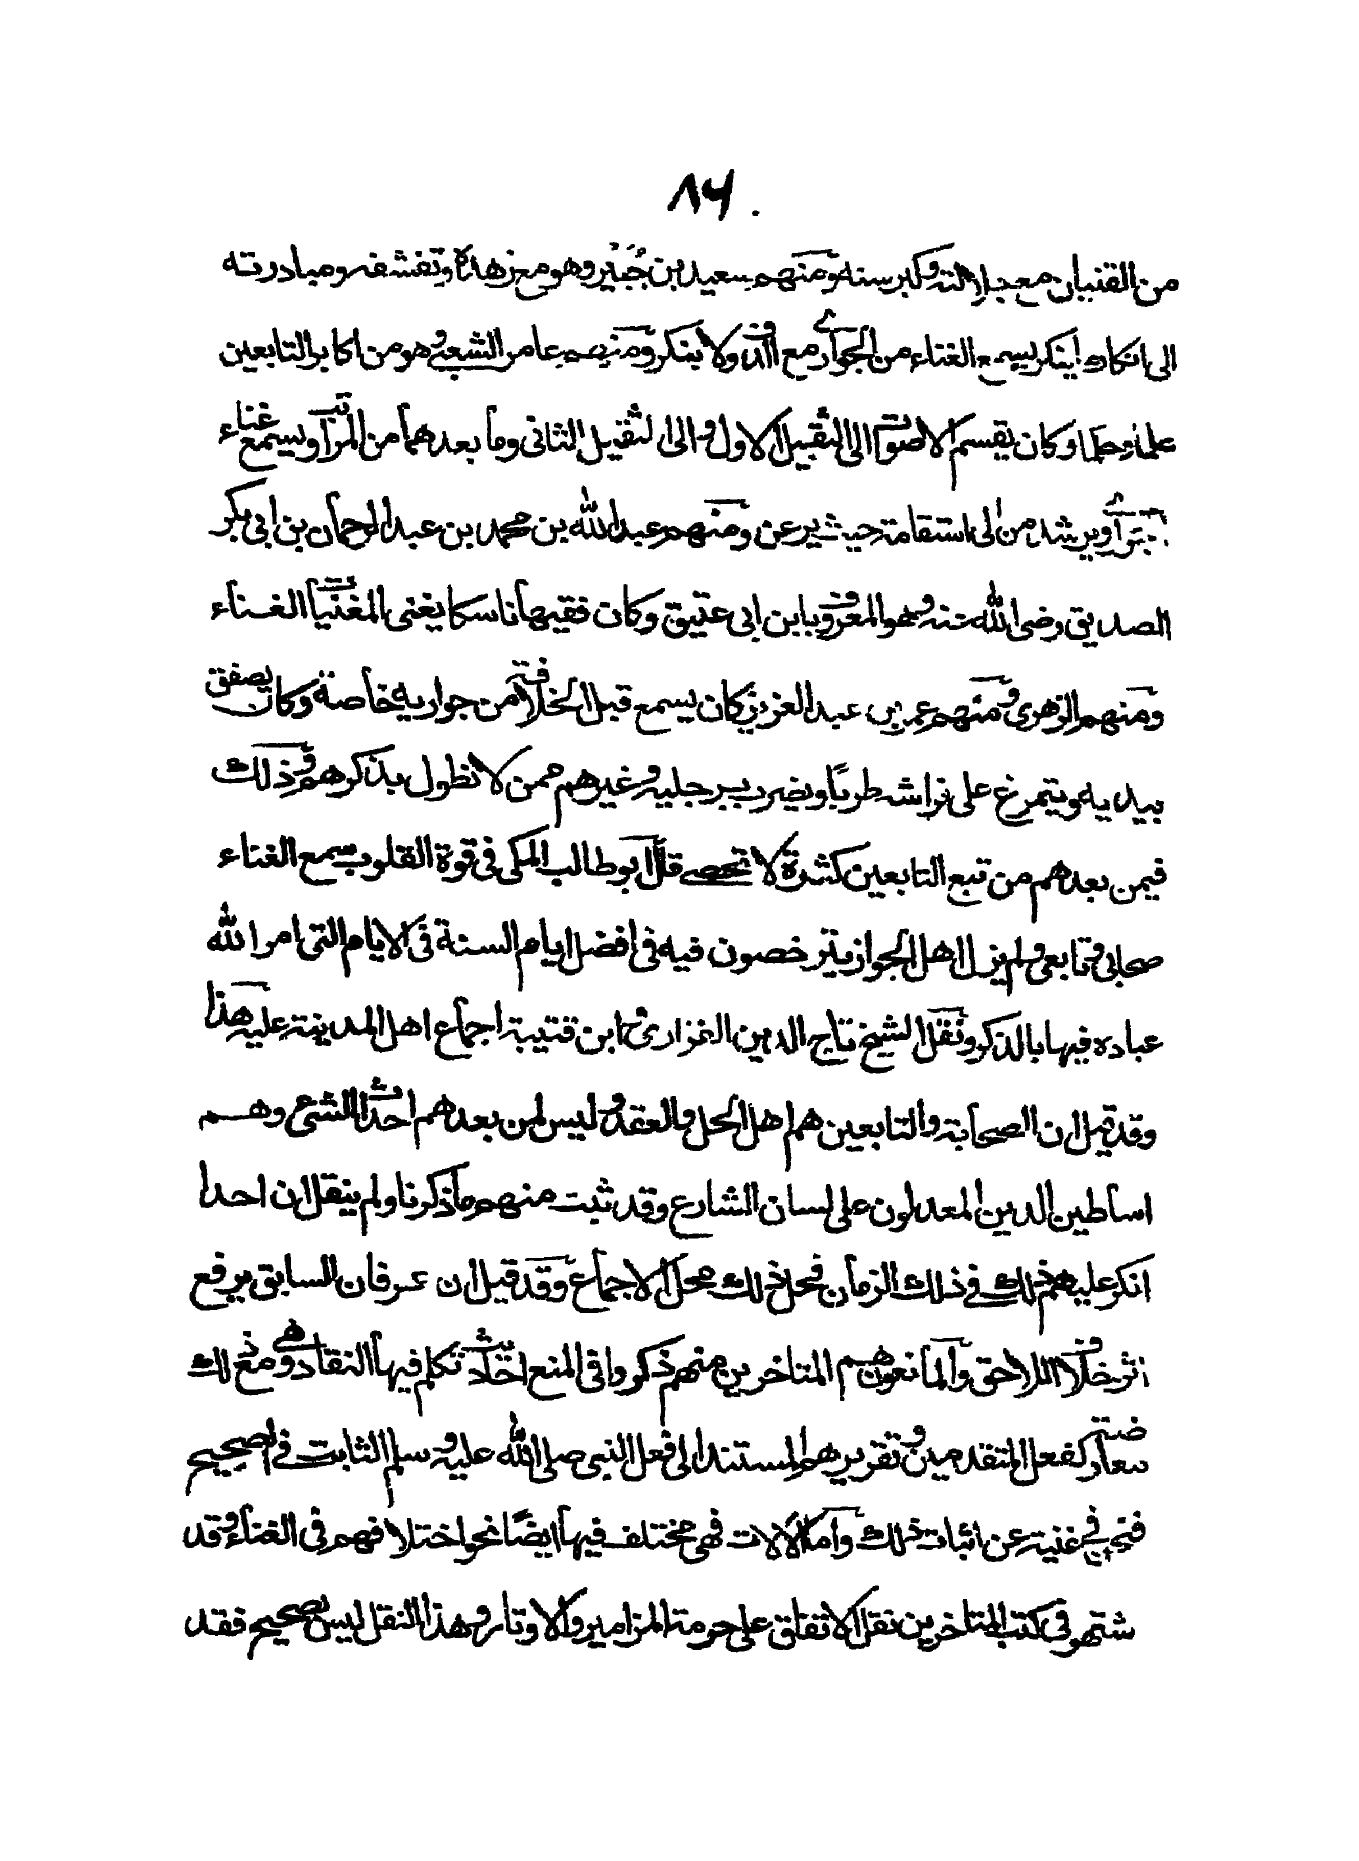 ٨٦
من القنيان مع جلالته وكبر سنه ومنهم سعيد بن جُبَير وهو مع زهادة وتقشفه ومبادرته
الى انكار ما ينكر يسمع الغناء من الجوارى مع الدف ولا ينكر ومنهم عامر الشعبى وهو من اكابر التابعين
علما وحلما وكان يقسم الاصوات الى الثقيل الاول والى الثقيل الثانى وما بعدهما من المراتب ويسمع غناء
ويرشد من الى استقامة حيث يرعن ومنهم عبد الله بن محمد بن عبد الرحمان بن ابى بكر
الصديق رضى الله عنه وهو المعروف بابن ابى عتيق وكان فقيها ناسكا يغنى المغنيات الغناء
ومنهم الزهرى ومنهم عمر بن عبد العزيز كان يسمع قبل الخلافة من جواريه خاصة وكان يصفق
بيديه ويتمرغ على فراشه طربًا ويضرب برجليه وغيرهم ممن لا نطول بذكرهم وذلك
فيمن بعدهم من تبع التابعين كثرة لا تحصى قال ابو طالب المكى فى قوة القلوب سمع الغناء
صحابى وتابعى ولم يزل اهل الجواز يترخصون فيه فى افضل ايام السنة فى الايام التى امر الله
عباده فيها بالذكر ونقل الشيخ تاج الدين الفزارى ابن قتيبة اجماع اهل المدينة عليه هذا
وقد قيل ان الصحابة والتابعين هم اهل الحل والعقد وليس لمن بعدهم احداث الشرع وهم
اساطين الدين المعدلون على لسان الشارع وقد ثبت منهم ما ذكرنا ولم ينقل ان احدا
انكر عليهم ذلك فى ذلك الزمان فحل ذلك محل الاجماع وقد قيل ان عرفان السابق يرفع
اثر خلاف اللاحق والمانعون هم المتاخرين منهم ذكروا فى المنع احاديث تكلم فيها النقاد وهى مع ذلك
معارضة كفعل المتقدمين وتقريرهم المستند الى فعل النبى صلى الله عليه وسلم الثابت فى الصحيح
غنية عن اثبات ذلك واما الالات فهى مختلف فيها ايضًا نحو اختلافهم فى الغناء وقد
شتهر فى كتب المتاخرين نقل الاتفاق على حرمة المزامير والاوتار وهذا النقل ليس بصحيح فقد